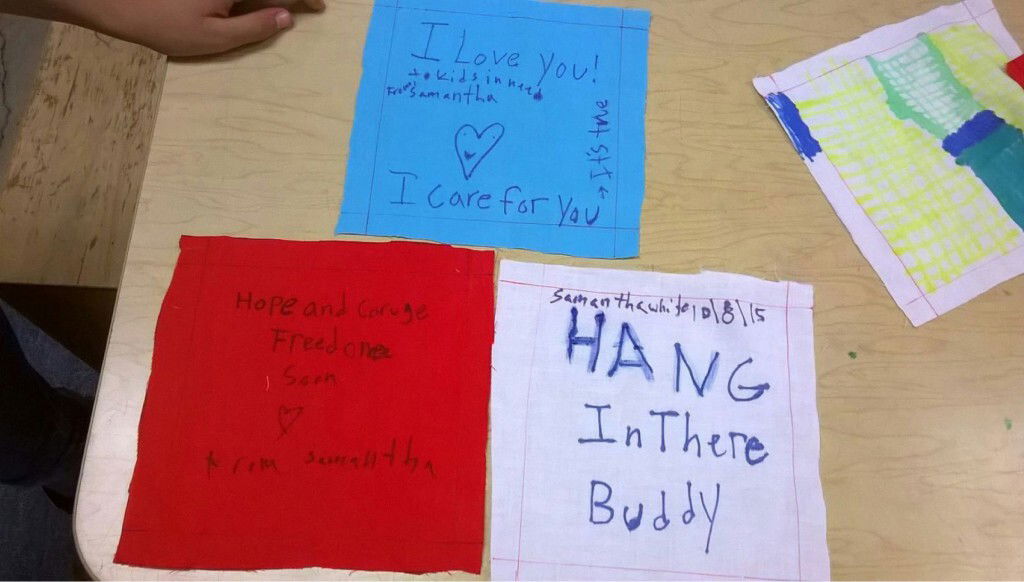 I Love you!
to kids in need
From Samantha
I care for you
→ It's true
Hope and Caruge
Freedome
Soon
From Samantha
Samantha white 10\8\15
HANG
In There
Buddy